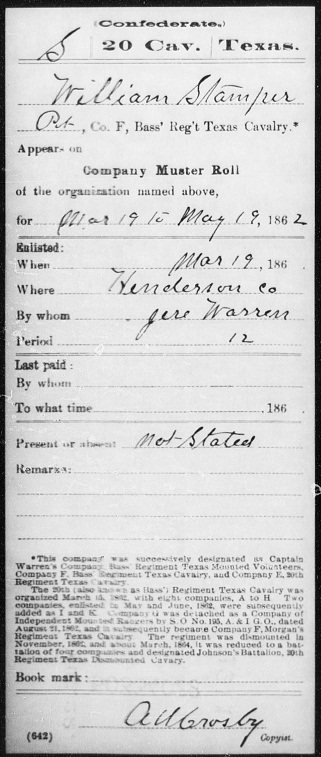 (Confederate.)
S | 20 Cav. | Texas.
William Stamper
Pvt, Co. F, Bass' Reg't Texas Cavalry.*
Appears on
Company Muster Roll
of the organization named above,
for Mar 19 to May 19, 1862
Enlisted:
When Mar 19, 186
Where Henderson Co
By whom Jere Warren
Period 12
Last paid:
By whom
To what time , 186
Present or absent Not Stated
Remarks:
*This company was successively designated as Captain
Warren's Company, Bass' Regiment Texas Mounted Volunteers,
Company F, Bass' Regiment Texas Cavalry, and Company E, 20th
Regiment Texas Cavalry.
The 20th (also known as Bass') Regiment Texas Cavalry was
organized March 15, 1862, with eight companies, A to H. Two
companies, enlisted in May and June, 1862, were subsequently
added as I and K. Company G was detached as a Company of
Independent Mounted Rangers by S. O. No. 195, A. & I G O., dated
August 21, 1862, and it subsequently became Company F, Morgan's
Regiment Texas Cavalry. The regiment was dismounted in
November, 1862, and about March, 1864, it was reduced to a bat-
talion of four companies and designated Johnson's Battalion, 20th
Regiment Texas Dismounted Cavalry.
Book mark:
A M Crosby
(642) Copyist.